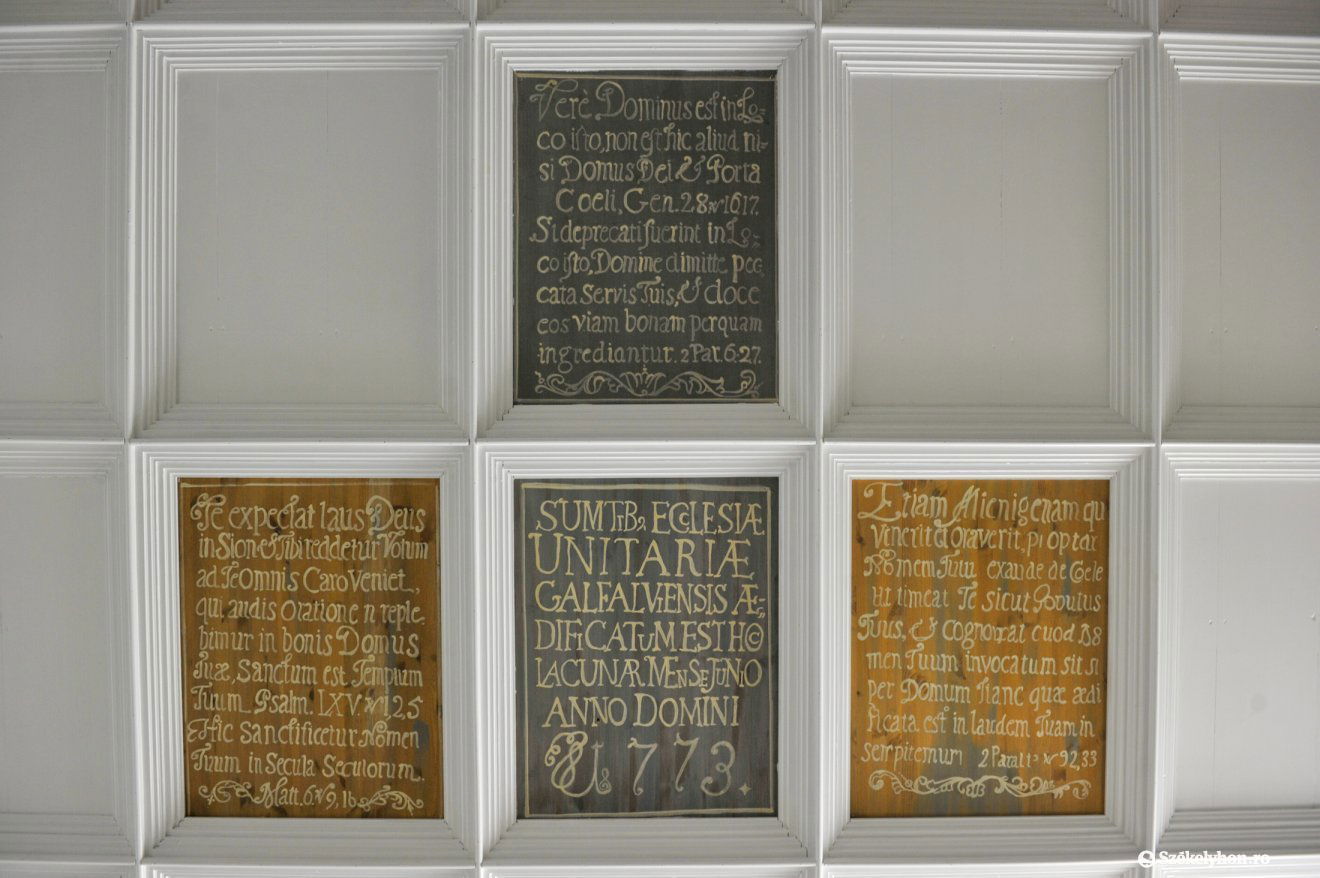 Verè Dominus est in Lo-
co isto, non est hic aliud ni-
si Domus Dei & Porta
Coeli, Gen. 28 ℣ 16 17.
Si deprecati fuerint in Lo-
co isto, Domine dimitte pec
cata Servis Tuis, & doce
eos viam bonam per quam
ingrediantur. 2 Par. 6. 27.
Te expectat laus Deus
in Sion & Tibi reddetur Votum
ad Te Omnis Caro Veniet,
qui audis Oratione n reple-
bimur in bonis Domus
Tuæ, Sanctum est Templum
Tuum Psalm. LXV ℣ 1,2,5
Hic Sanctificetur Nomen
Tuum in Secula Seculorum.
Matt. 6 ℣ 9, 16
SUMTIB, ECCLESIÆ
UNITARIÆ
GALFALVIENSIS Æ-
DIFICATUM EST HOC
LACUNAR MENSE JUNIO
ANNO DOMINI
1773.
Etiam Alienigenam qu
Venerit & Oraverit, propter
Nomen Tuum exaude de Coele
ut timeat Te sicut Populus
Tuus, &
men Tuum invocatum sit su
per Domum hanc quæ ædi
ficata est in laudem Tuam in
sempiternum 2 Paral ℣ 32,33
Székelyhon.ro